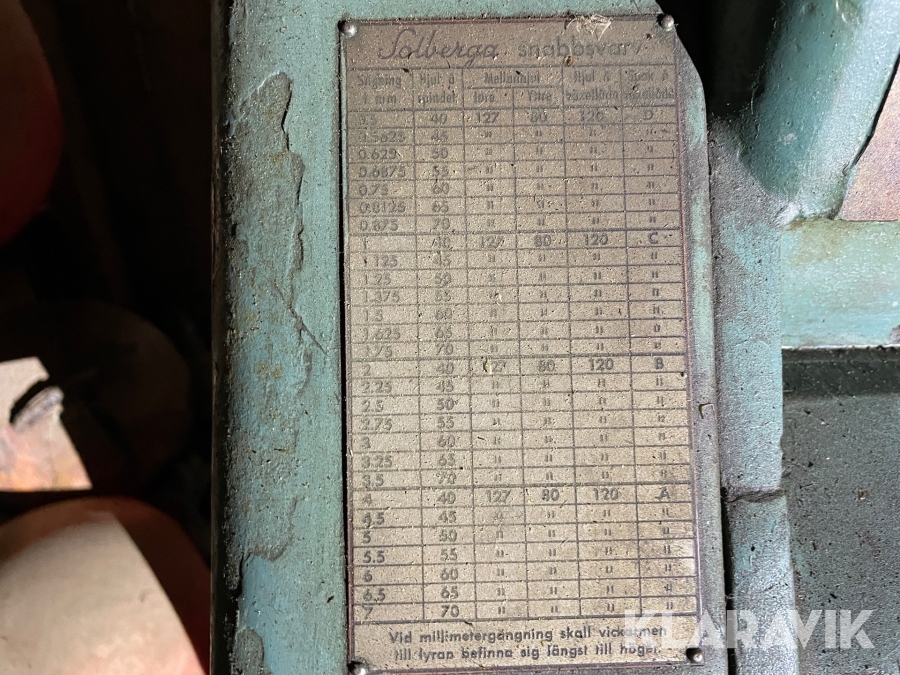 Solberga snabbsvarv
Stigning Hjul å Mellanhjul Hjul å Spak å
i mm spindel Inre Yttre växellåda växellåda
0.5 40 127 80 120 D
0.5625 45 " " " "
0.625 50 " " " "
0.6875 55 " " " "
0.75 60 " " " "
0.8125 65 " " " "
0.875 70 " " " "
1 40 127 80 120 C
1.125 45 " " " "
1.25 50 " " " "
1.375 55 " " " "
1.5 60 " " " "
1.625 65 " " " "
1.75 70 " " " "
2 40 127 80 120 B
2.25 45 " " " "
2.5 50 " " " "
2.75 55 " " " "
3 60 " " " "
3.25 65 " " " "
3.5 70 " " " "
4 40 127 80 120 A
4.5 45 " " " "
5 50 " " " "
5.5 55 " " " "
6 60 " " " "
6.5 65 " " " "
7 70 " " " "
Vid millimetergängning skall vickarmen
till lyran befinna sig längst till höger.
KLARAVIK